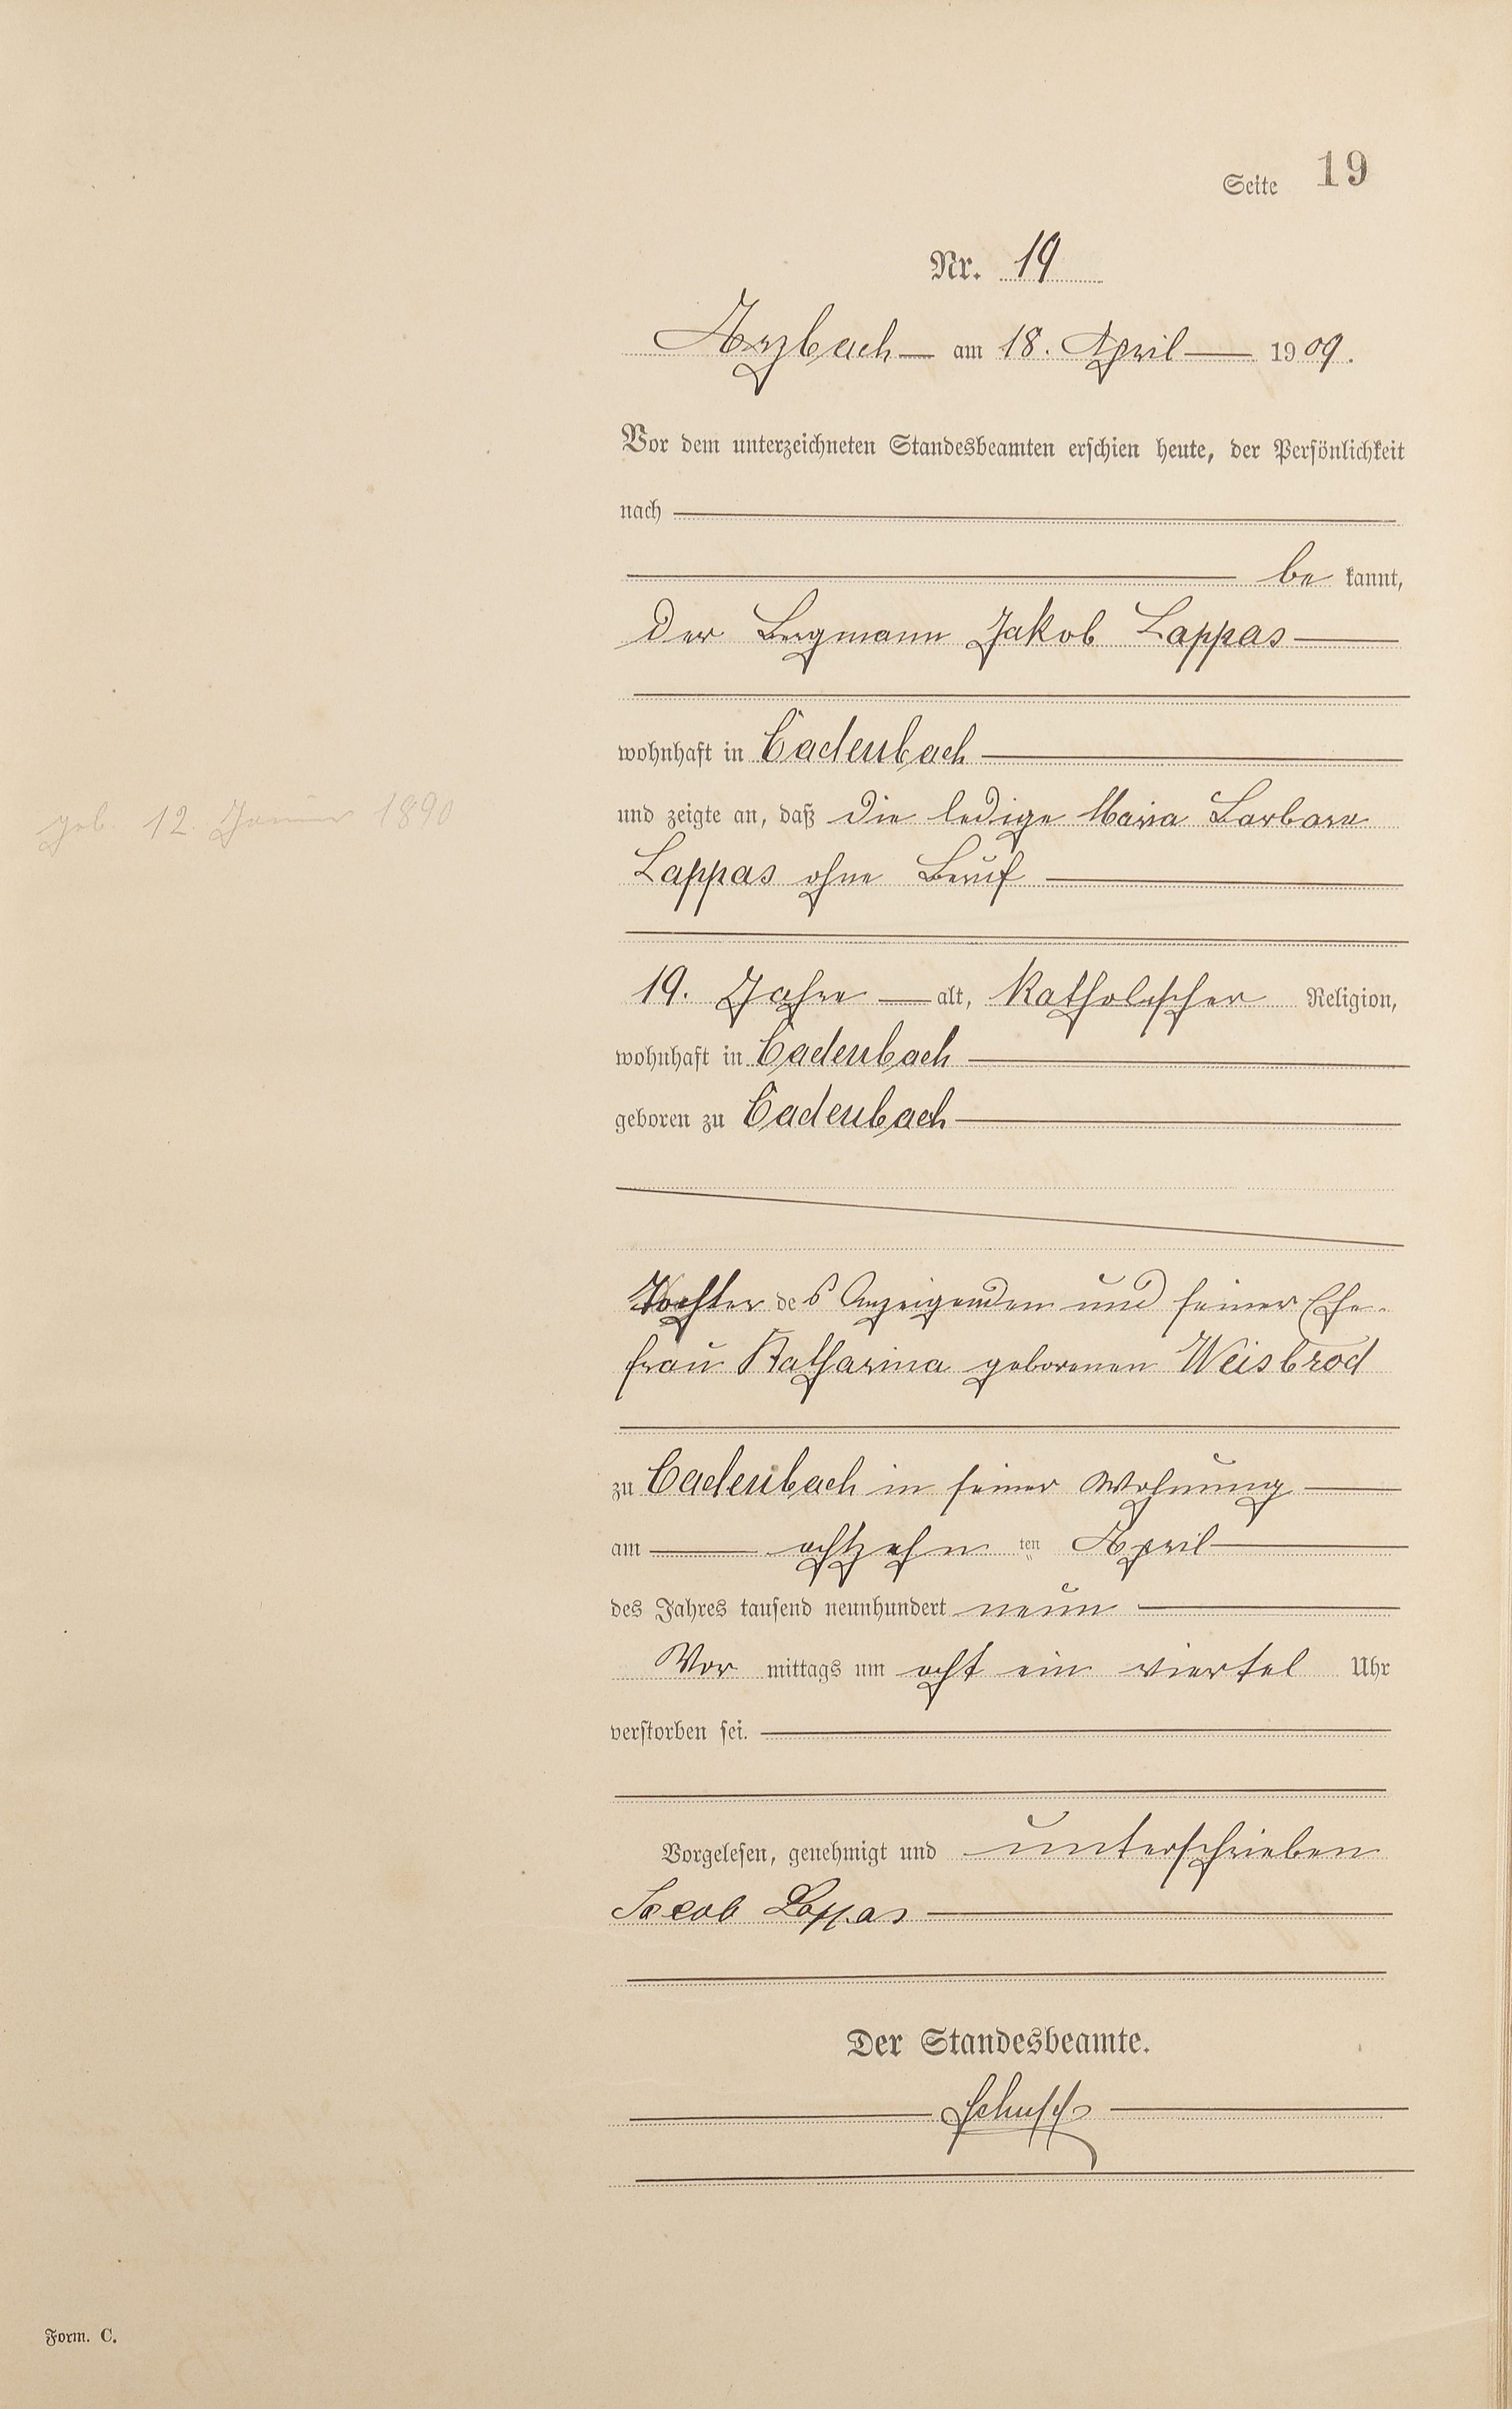 Seite 19
Nr. 19
Arzbach am 18. April 1909.
Vor dem unterzeichneten Standesbeamten erschien heute, der Persönlichkeit
nach
be kannt,
der Bergmann Jakob Lappas
wohnhaft in Cadenbach
und zeigte an, daß die ledige Maria Barbara
geb. 12. Januar 1890
Lappas ohne Beruf
19. Jahre alt, Katholischer Religion,
wohnhaft in Cadenbach
geboren zu Cadenbach
Tochter des Anzeigenden und seiner Ehe-
frau Katharina geborenen Weisbrod
zu Cadenbach in seiner Wohnung
am achtzehn ten April
des Jahres tausend neunhundert neun
Vor mittags um acht ein viertel Uhr
verstorben sei.
Vorgelesen, genehmigt und unterschrieben
Jacob Lappas
Der Standesbeamte.
Form. C.